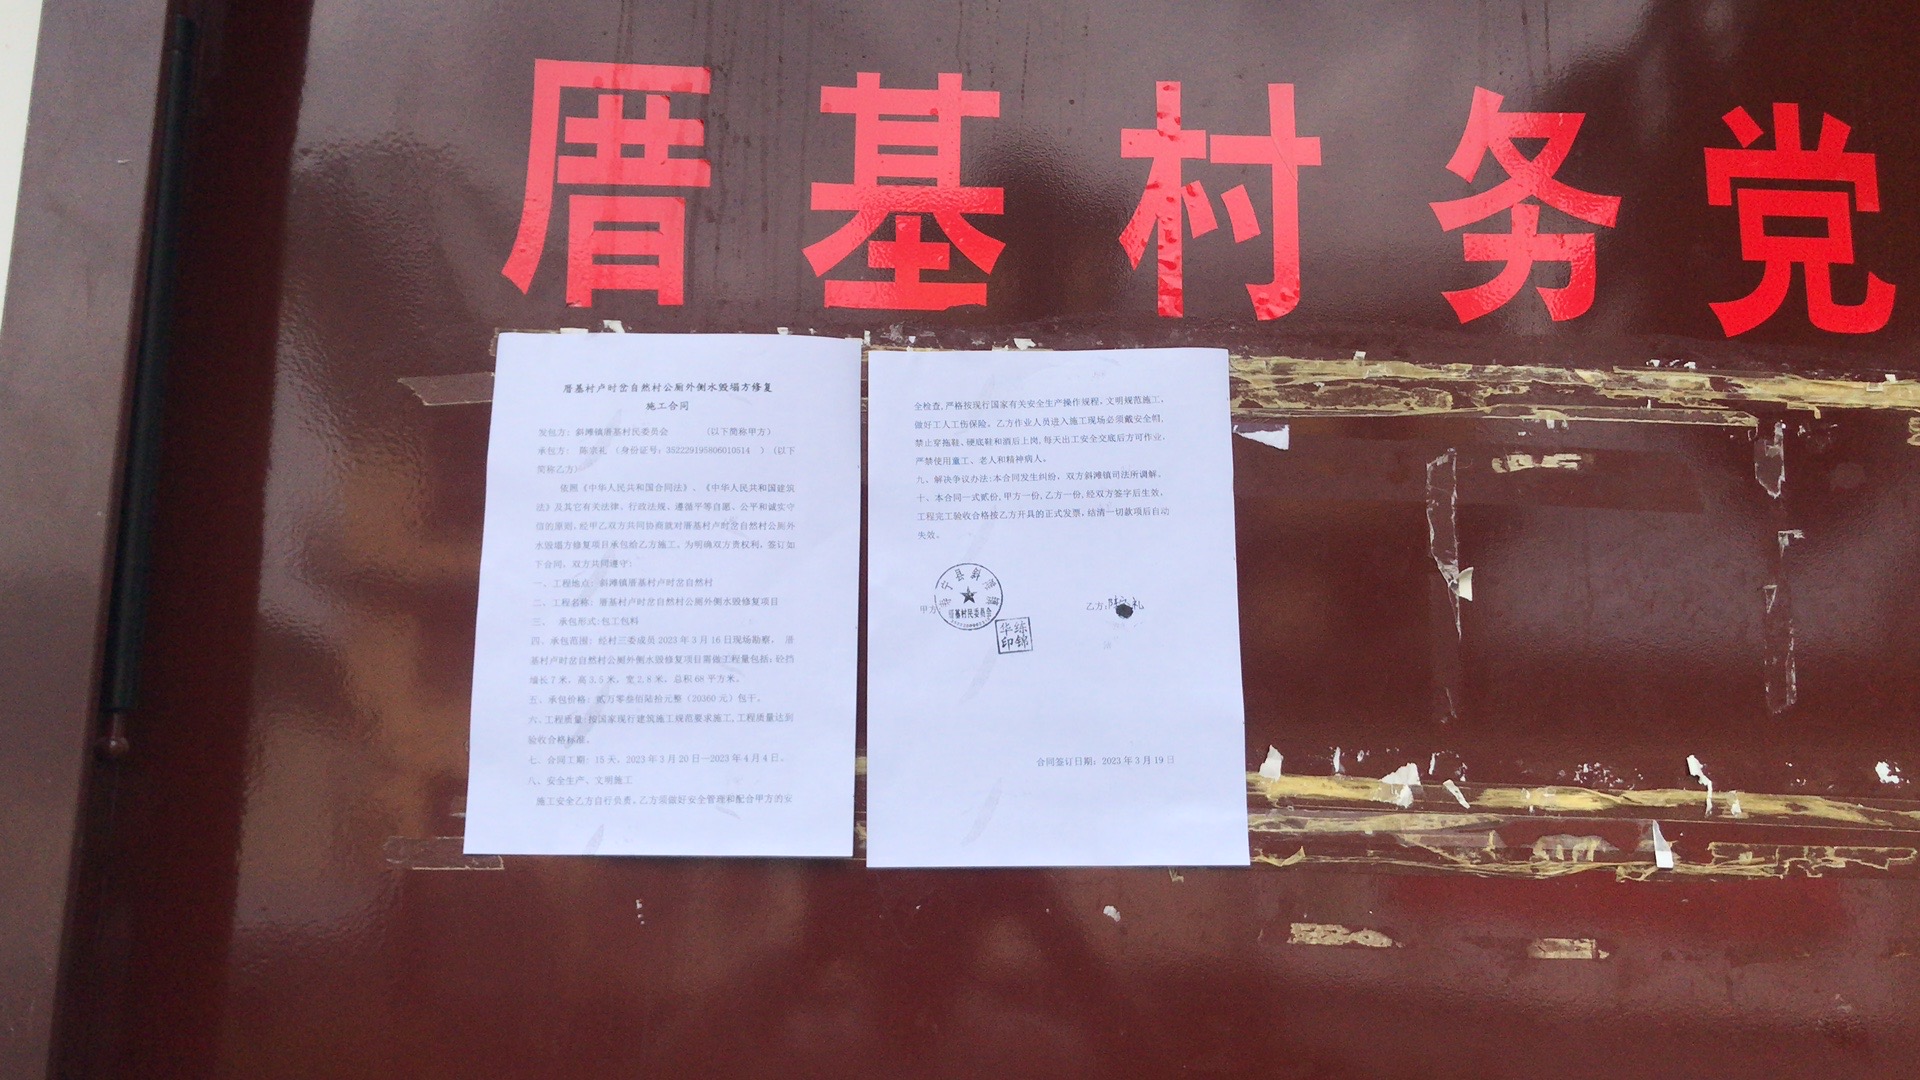 厝基村务党
厝基村卢时岔自然村公厕外侧水毁塌方修复
施工合同
发包方：斜滩镇厝基村民委员会 （以下简称甲方）
承包方： 陈宗礼 （身份证号：352229195806010514 ）（以下
简称乙方）
依照《中华人民共和国合同法》、《中华人民共和国建筑
法》及其它有关法律、行政法规、遵循平等自愿、公平和诚实守
信的原则，经甲乙双方共同协商就对厝基村卢时岔自然村公厕外
水毁塌方修复项目承包给乙方施工。为明确双方责权利，签订如
下合同，双方共同遵守：
一、工程地点：斜滩镇厝基村卢时岔自然村
二、工程名称：厝基村卢时岔自然村公厕外侧水毁修复项目
三、 承包形式:包工包料
四、承包范围：经村三委成员2023年3月16日现场勘察， 厝
基村卢时岔自然村公厕外侧水毁修复项目需做工程量包括：砼挡
墙长7米，高3.5米，宽2.8米，总积68平方米。
五、承包价格：贰万零叁佰陆拾元整（20360元）包干。
六、工程质量:按国家现行建筑施工规范要求施工,工程质量达到
验收合格标准。
七、合同工期：15天，2023年3月20日—2023年4月4日。
八、安全生产、文明施工
施工安全乙方自行负责。乙方须做好安全管理和配合甲方的安
全检查,严格按现行国家有关安全生产操作规程，文明规范施工，
做好工人工伤保险。乙方作业人员进入施工现场必须戴安全帽,
禁止穿拖鞋、硬底鞋和酒后上岗,每天出工安全交底后方可作业，
严禁使用童工、老人和精神病人。
九、解决争议办法:本合同发生纠纷，双方斜滩镇司法所调解。
十、本合同一式贰份,甲方一份,乙方一份,经双方签字后生效，
工程完工验收合格按乙方开具的正式发票，结清一切款项后自动
失效。
寿宁县斜滩镇
厝基村民委员会
甲方
乙方:陈宗礼
华练
印锦
合同签订日期：2023年3月19日